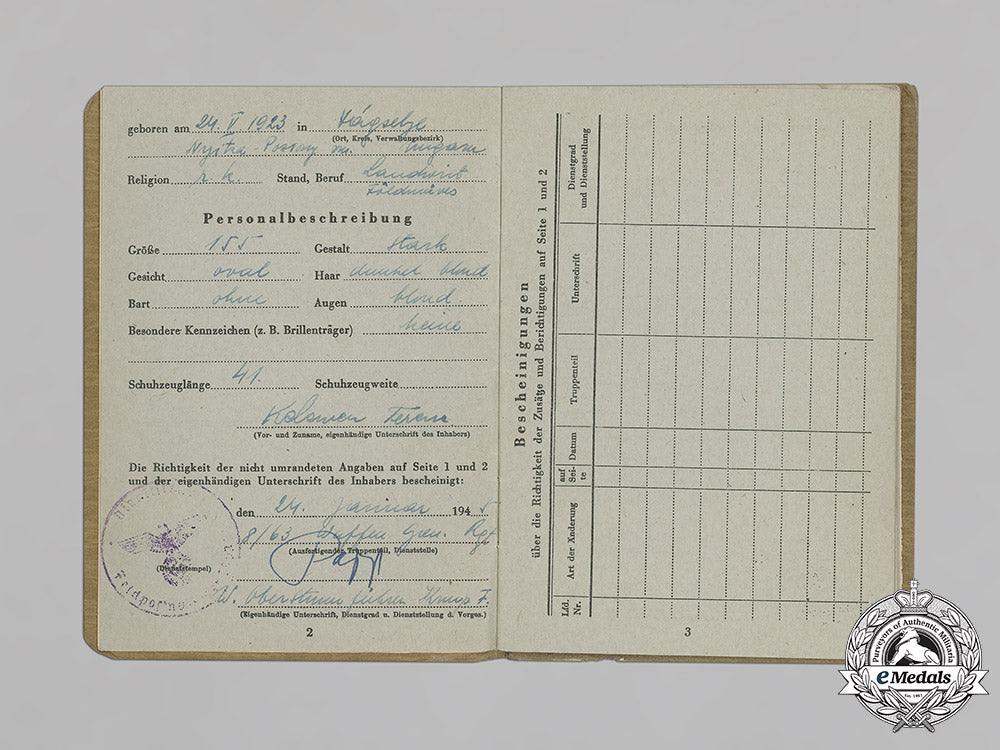 geboren am 24. V 1923 in
(Ort, Kreis, Verwaltungsbezirk)
Nyitra-Pozsony m. Ungarn
Religion r. k. Stand, Beruf Landwirt
Földmüves
Personalbeschreibung
Größe 155 Gestalt stark
Gesicht oval Haar dunkel blond
Bart ohne Augen blond
Besondere Kennzeichen (z. B. Brillenträger) keine
Schuhzeuglänge 41. Schuhzeugweite
(Vor- und Zuname, eigenhändige Unterschrift des Inhabers)
Die Richtigkeit der nicht umrandeten Angaben auf Seite 1 und 2
und der eigenhändigen Unterschrift des Inhabers bescheinigt:
den 24. Januar 1945
8/63 Waffen Gren. Rgt
(Ausfertigender Truppenteil, Dienststelle)
(Dienststempel)
W. Obersturmführer
(Eigenhändige Unterschrift, Dienstgrad u. Dienststellung d. Vorges.)
Feldpost
2
Bescheinigungen
über die Richtigkeit der Zusätze und Berichtigungen auf Seite 1 und 2
Lfd. Nr.
Art der Änderung
auf Sei-te
Datum
Truppenteil
Unterschrift
Dienstgrad
und Dienststellung
3
Purveyors of Authentic Militaria
eMedals